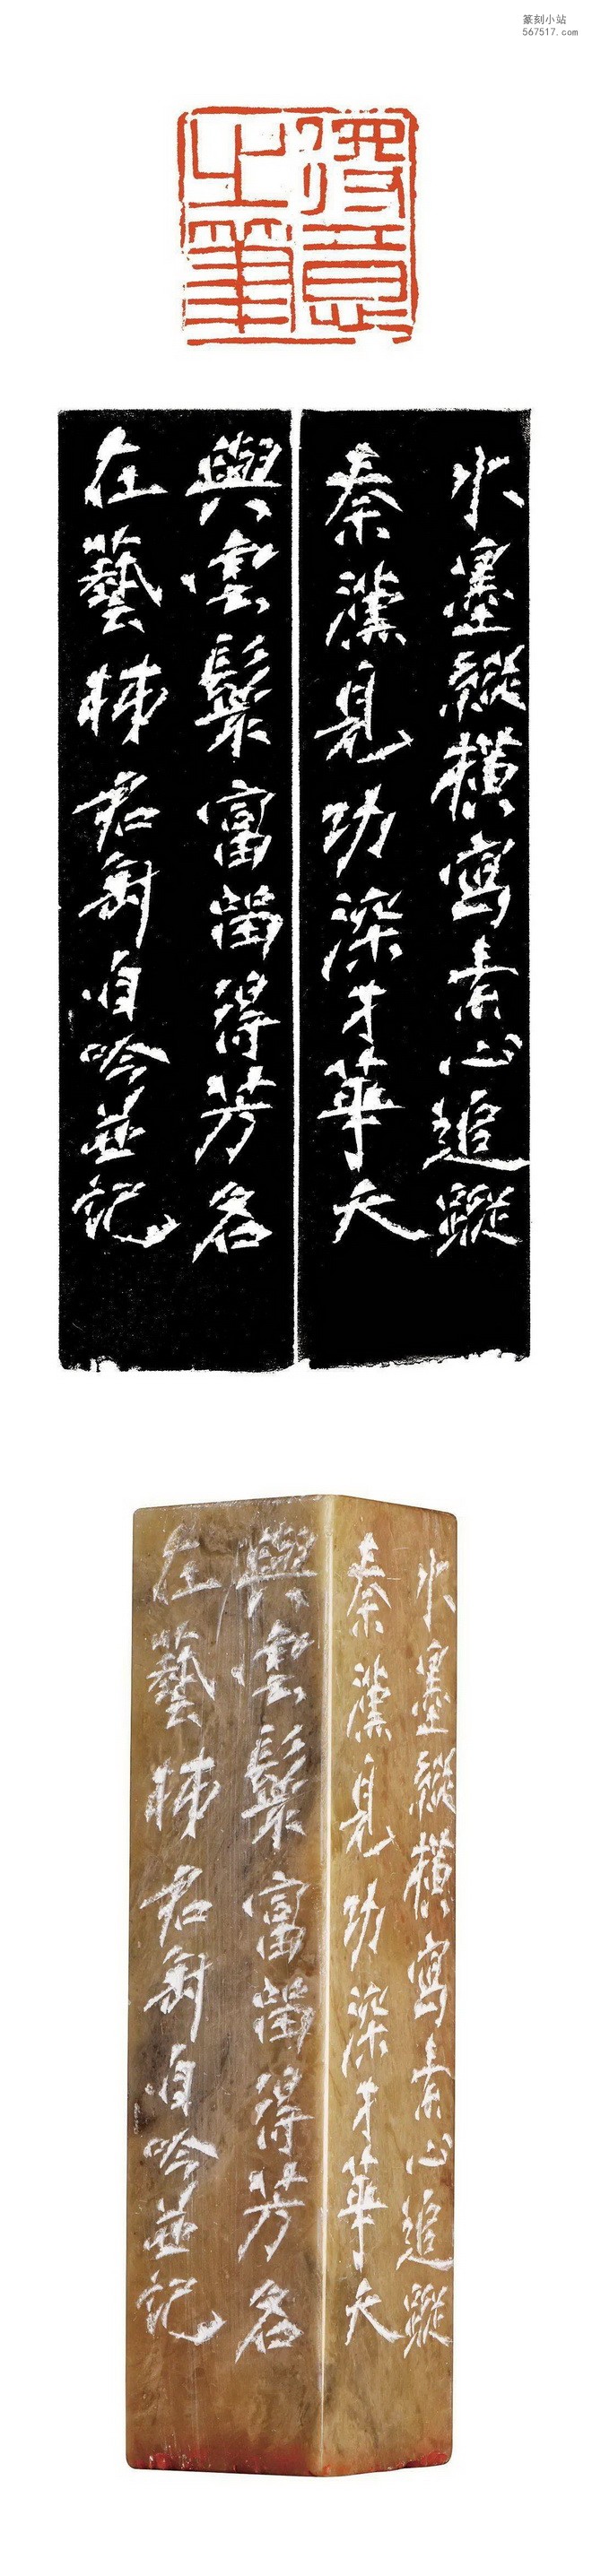 篆刻小站
567517.com
得意
之筆
水墨縱橫寫素心追蹤
秦漢見功深才華天
與雲鬢富留得芳名
在藝林君匋自吟並記
水墨縱橫寫素心追蹤
秦漢見功深才華天
與雲鬢富留得芳名
在藝林君匋自吟並記